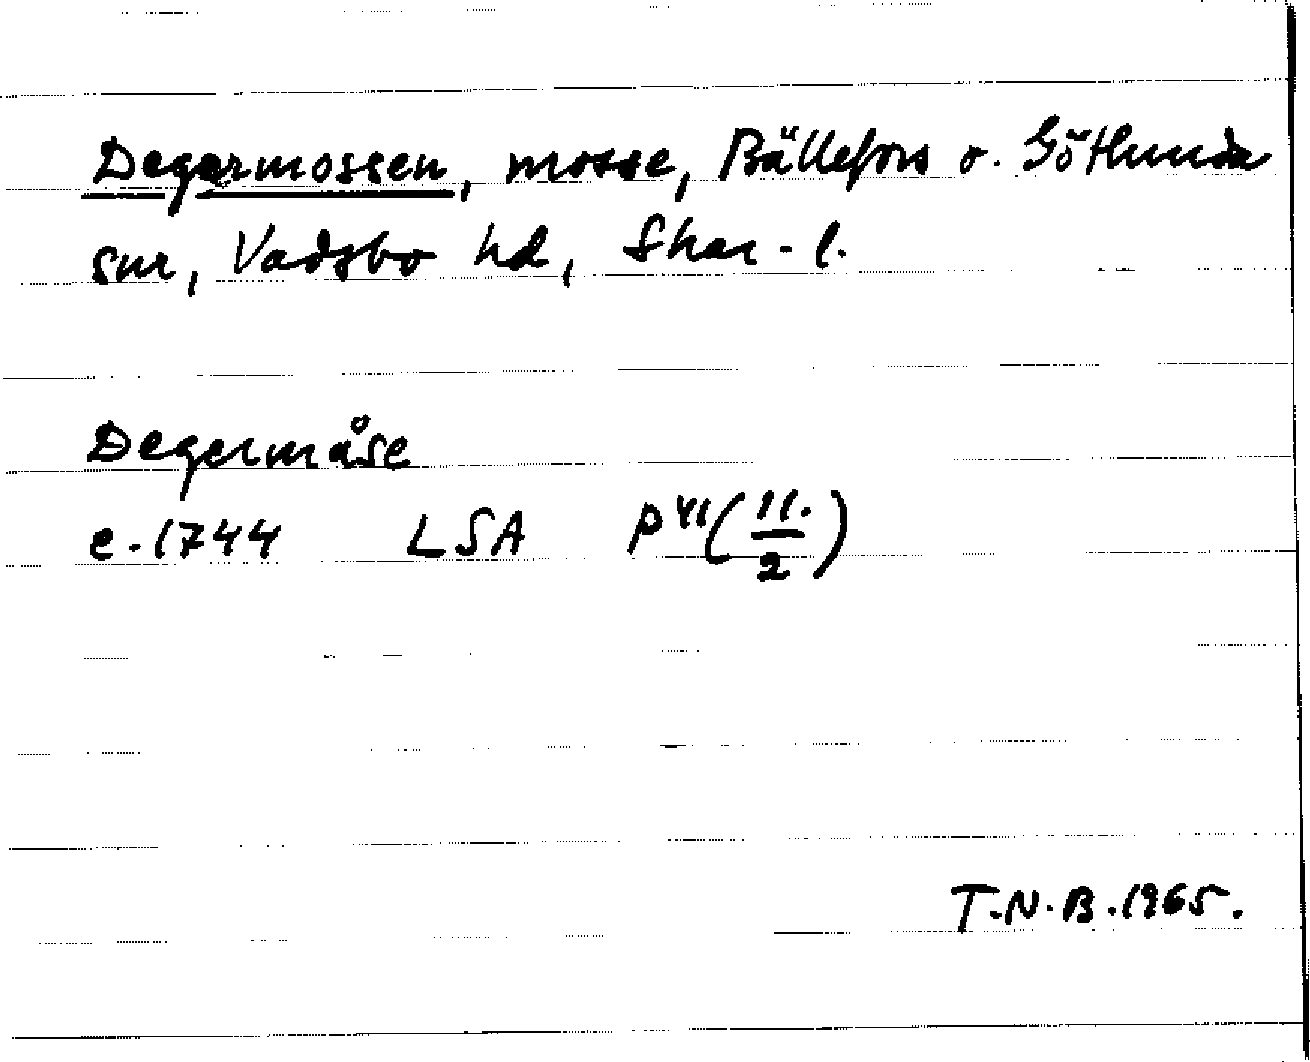 Degermossen, mosse, Bällefors o. Götlunda
snr, Vadsbo hd, Skar-l.
Degermåse
e.1744 LSA P (11./2)
T.N.B.1965.